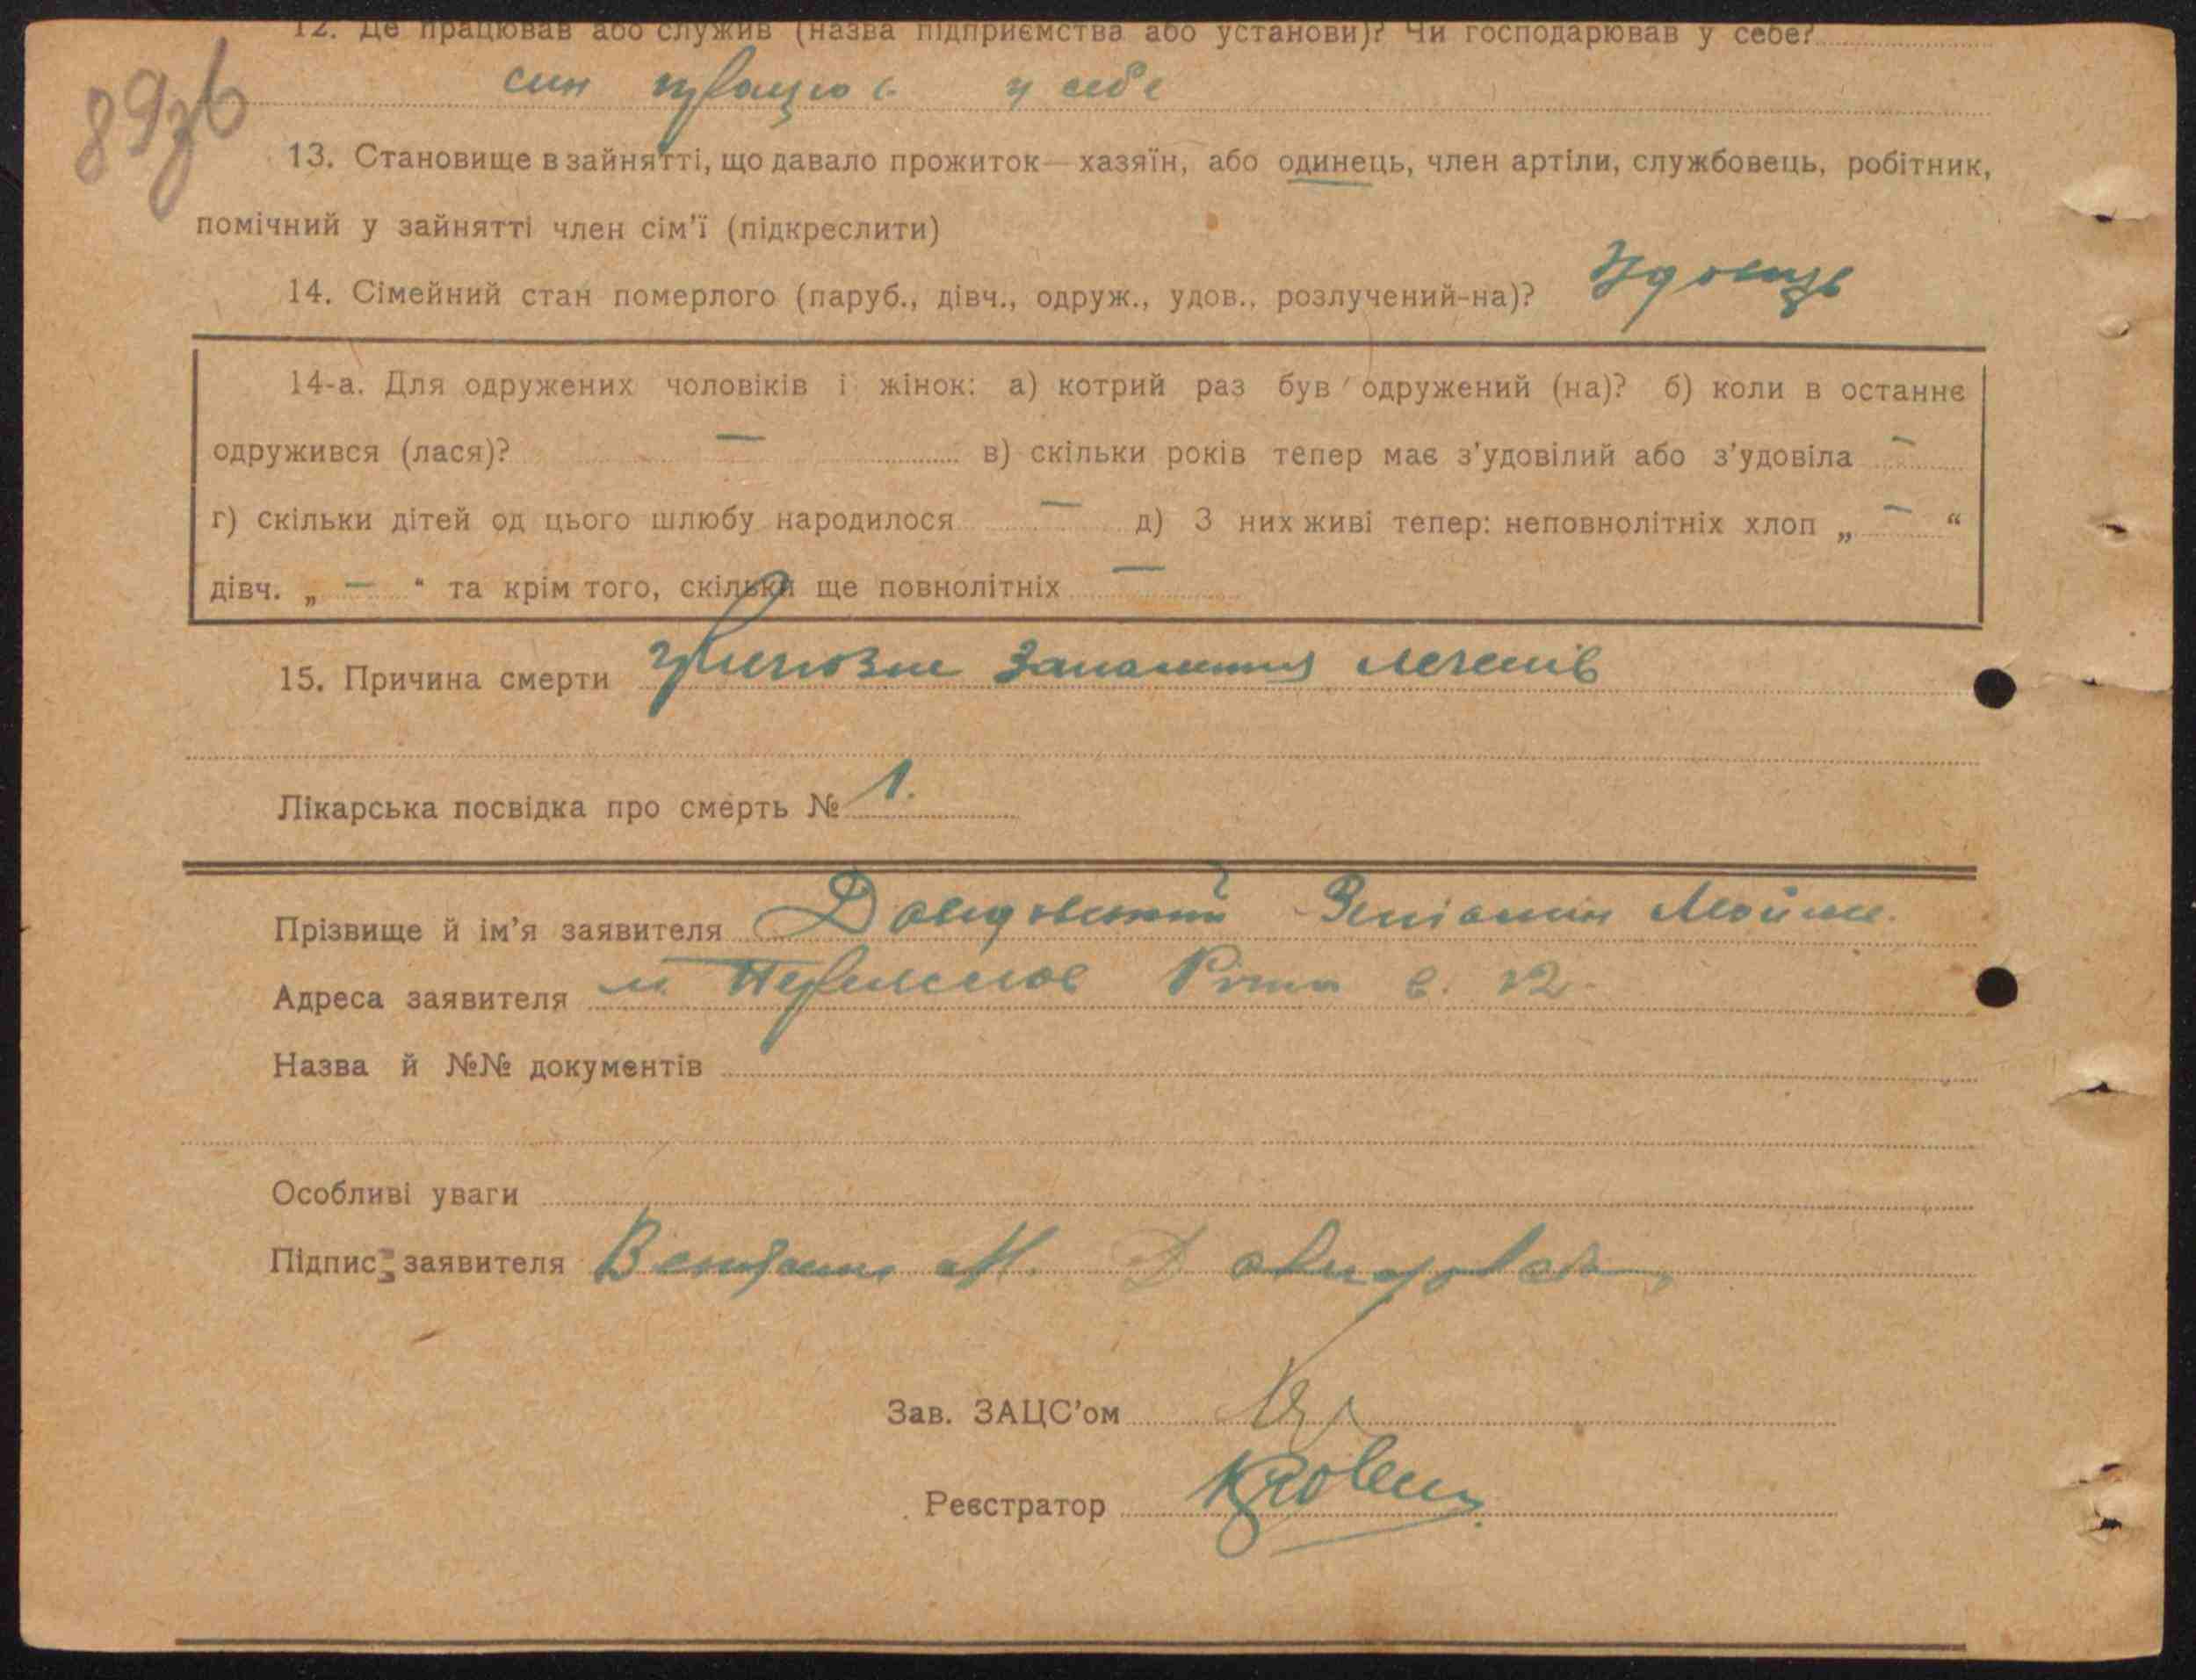 12. Де працював або служив (назва підприємства або установи)? Чи господарював у себе?
син працює у себе
89зв
13. Становище в зайнятті, що давало прожиток — хазяїн, або одинець, член артіли, службовець, робітник,
помічний у зайнятті член сім'ї (підкреслити)
14. Сімейний стан померлого (паруб., дівч., одруж., удов., розлучений-на)? Удовець
14-а. Для одружених чоловіків і жінок: а) котрий раз був одружений (на)? б) коли в останнє
одружився (лася)? — в) скільки років тепер має з'удовілий або з'удовіла —
г) скільки дітей од цього шлюбу народилося — д) З них живі тепер: неповнолітніх хлоп „ — “
дівч. „ — “ та крім того, скільки ще повнолітніх —
15. Причина смерти запалення легенів
Лікарська посвідка про смерть № 1.
Прізвище й ім'я заявителя Давидовський Веніамин Мойше.
Адреса заявителя м.
Назва й №№ документів
Особливі уваги
Підпис заявителя М.
Зав. ЗАЦС'ом
Реєстратор